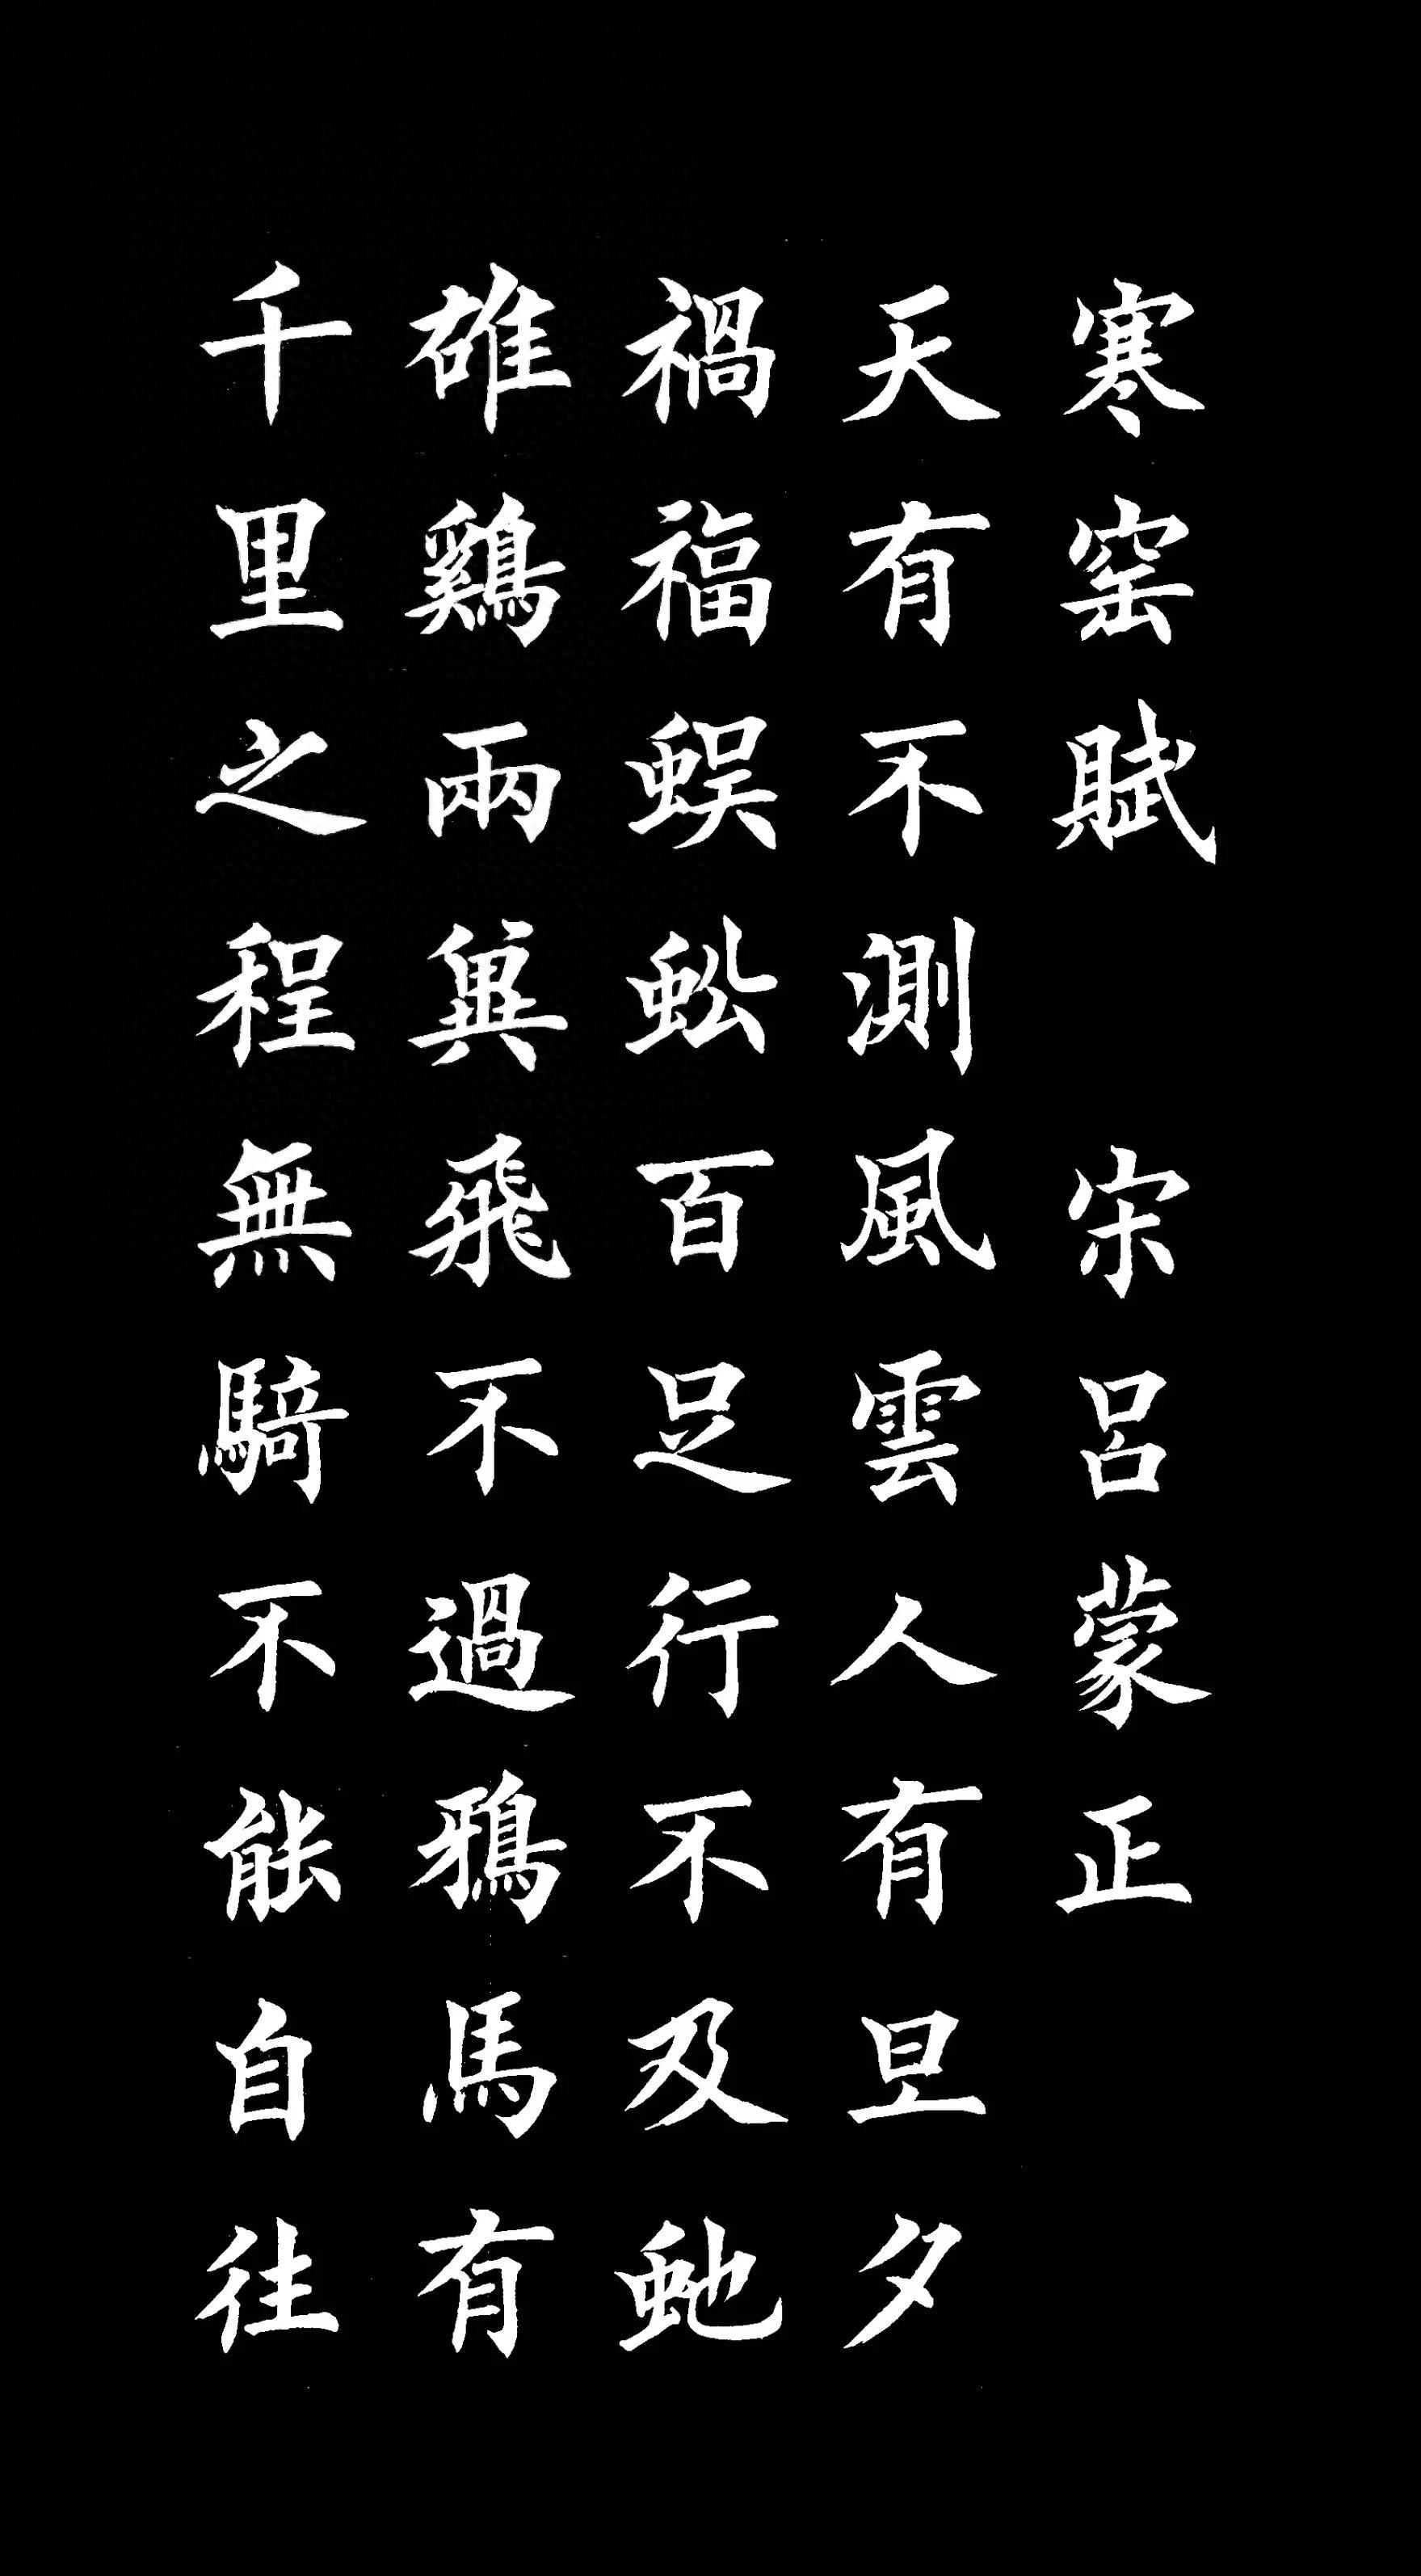 寒窑賦 宋 呂蒙正
天有不測風雲人有旦夕
禍福蜈蚣百足行不及虵
雄鷄兩翼飛不過鴉馬有
千里之程無騎不能自往